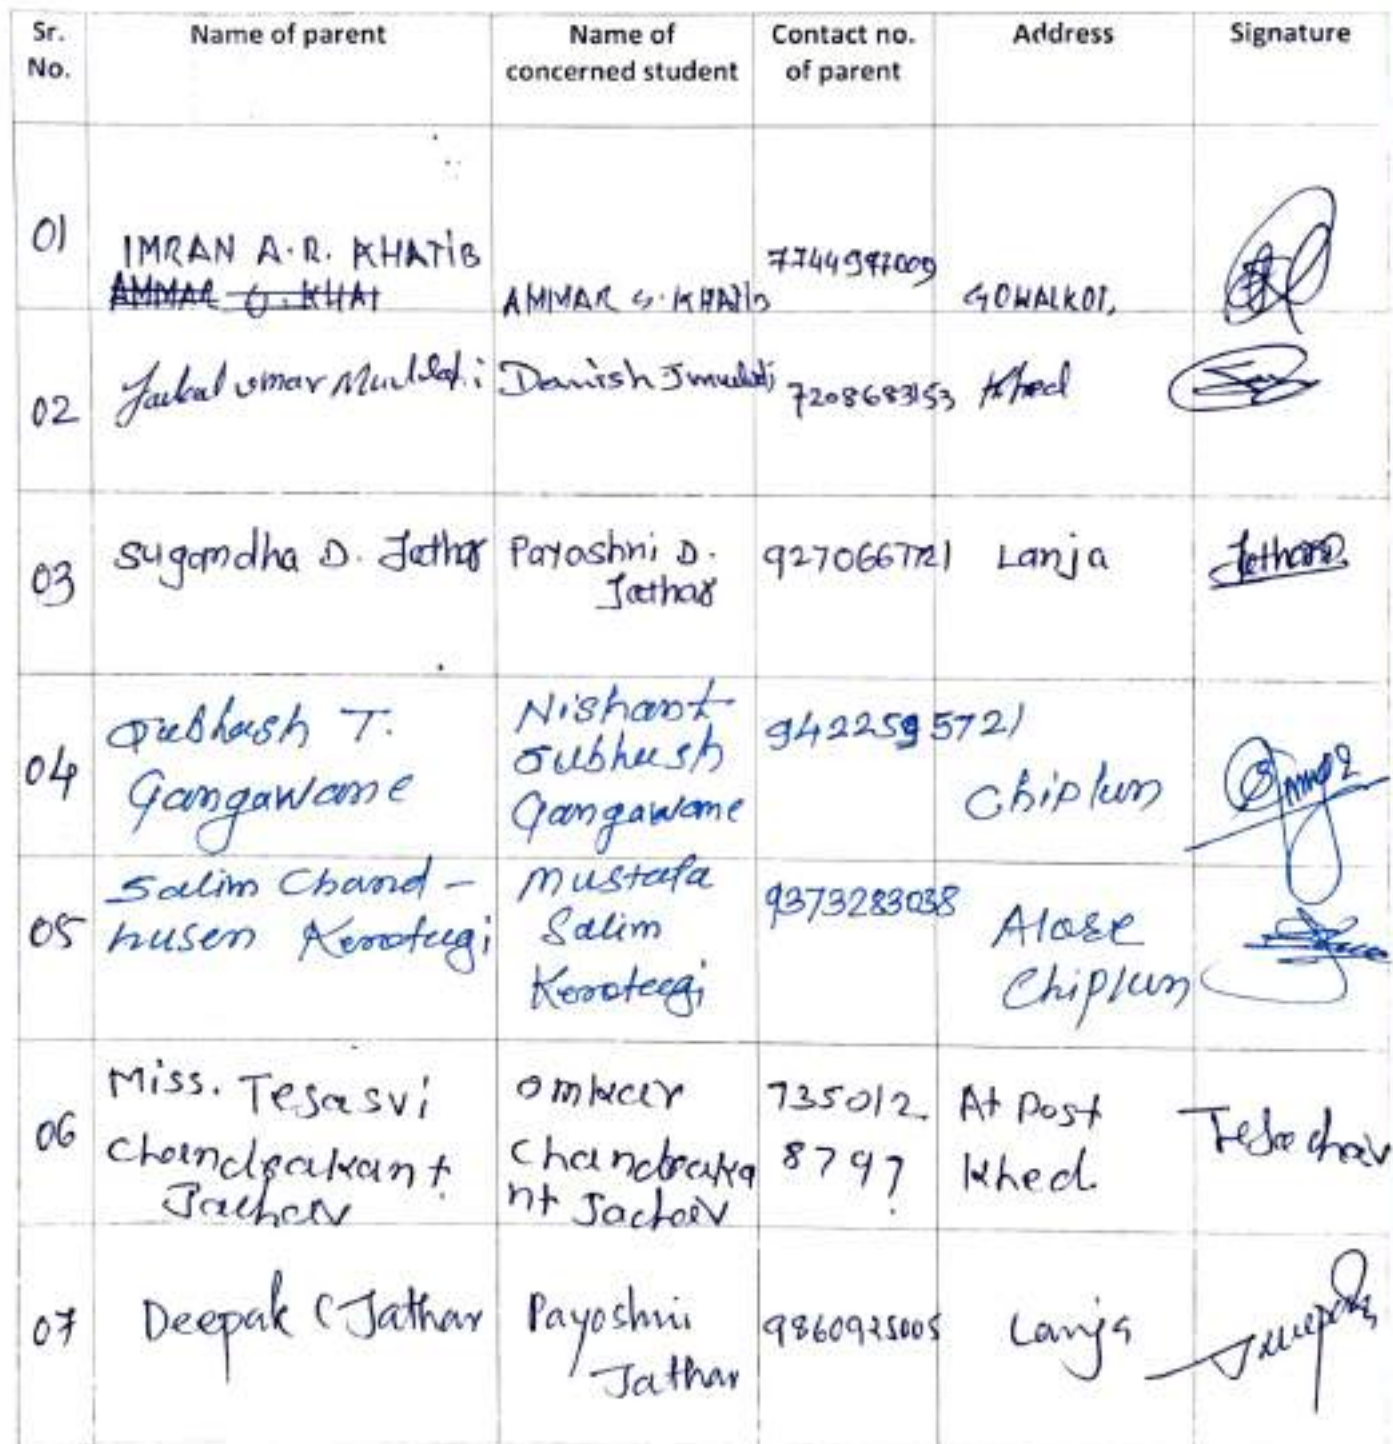 Sr. No. Name of parent Name of concerned student Contact no. of parent Address Signature
01 IMRAN A.R. KHATIB AMMAR S. KHATIB GOWALKOT,
02 Umar Danish J 7208683153 Khed
03 Sugandha D. Jathar Payoshni D. Jathar Lanja Jathar
04 Subhash T. Gangawane Nishant Subhash Gangawane 9422595721 Chiplun
05 Salim Chand - husen Mustafa Salim 9373283038 Alore Chiplun
06 Miss. Tejasvi Chandrakant Jadhav Omkar Chandraka nt Jadhav 735012 8797 At Post Khed.
07 Deepak C Jathar Payoshni Jathar 9860925005 Lanja